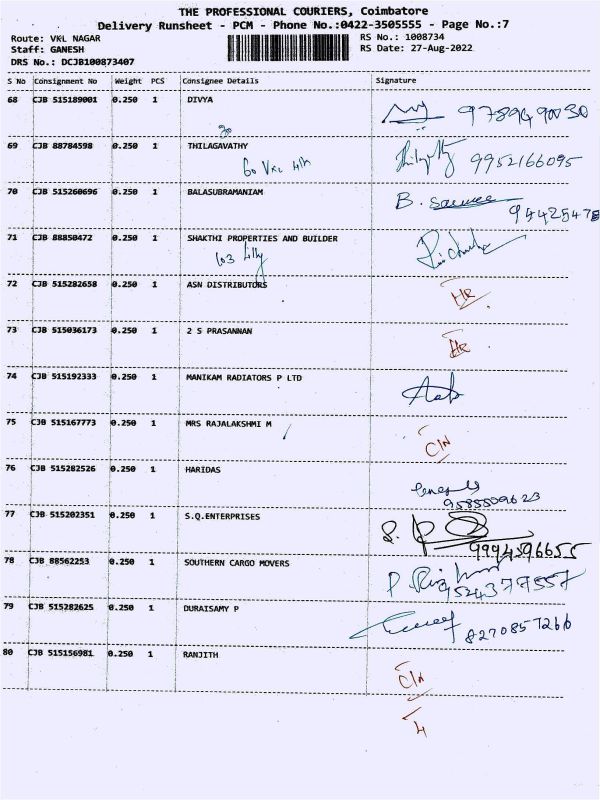 THE PROFESSIONAL COURIERS, Coimbatore
Delivery Runsheet - PCM - Phone No.:0422-3505555 - Page No.:7
Route: VKL NAGAR RS No.: 1008734
Staff: GANESH RS Date: 27-Aug-2022
DRS No.: DCJB100873407
S No Consignment No Weight PCS Consignee Details Signature
68 CJB 515189001 0.250 1 DIVYA
9789490030
69 CJB 88784598 0.250 1 THILAGAVATHY
60 VKL 9952166095
70 CJB 515260696 0.250 1 BALASUBRAMANIAM B.
71 CJB 88850472 0.250 1 SHAKTHI PROPERTIES AND BUILDER
103 Lilly
72 CJB 515282658 0.250 1 ASN DISTRIBUTORS
HR
73 CJB 515036173 0.250 1 2 S PRASANNAN
HR
74 CJB 515192333 0.250 1 MANIKAM RADIATORS P LTD
75 CJB 515167773 0.250 1 MRS RAJALAKSHMI M
C/N
76 CJB 515282526 0.250 1 HARIDAS
9585509623
77 CJB 515202351 0.250 1 S.Q.ENTERPRISES
9994596655
78 CJB 88562253 0.250 1 SOUTHERN CARGO MOVERS
9524377557
79 CJB 515282625 0.250 1 DURAISAMY P
8270857266
80 CJB 515156981 0.250 1 RANJITH
C/N
4